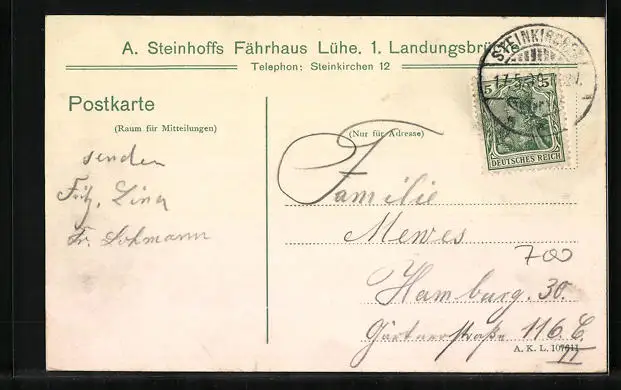 A. Steinhoffs Fährhaus Lühe. 1. Landungsbrücke
Telephon: Steinkirchen 12
STEINKIRCHEN
17.5.
5 5
DEUTSCHES REICH
Postkarte
(Raum für Mitteilungen)
(Nur für Adresse)
senden
Fritz, Lina
Fr. Lohmann
Familie
Mewes
700
Hamburg. 30.
Gärtnerstraße 116. C.
II
A. K. L. 107611